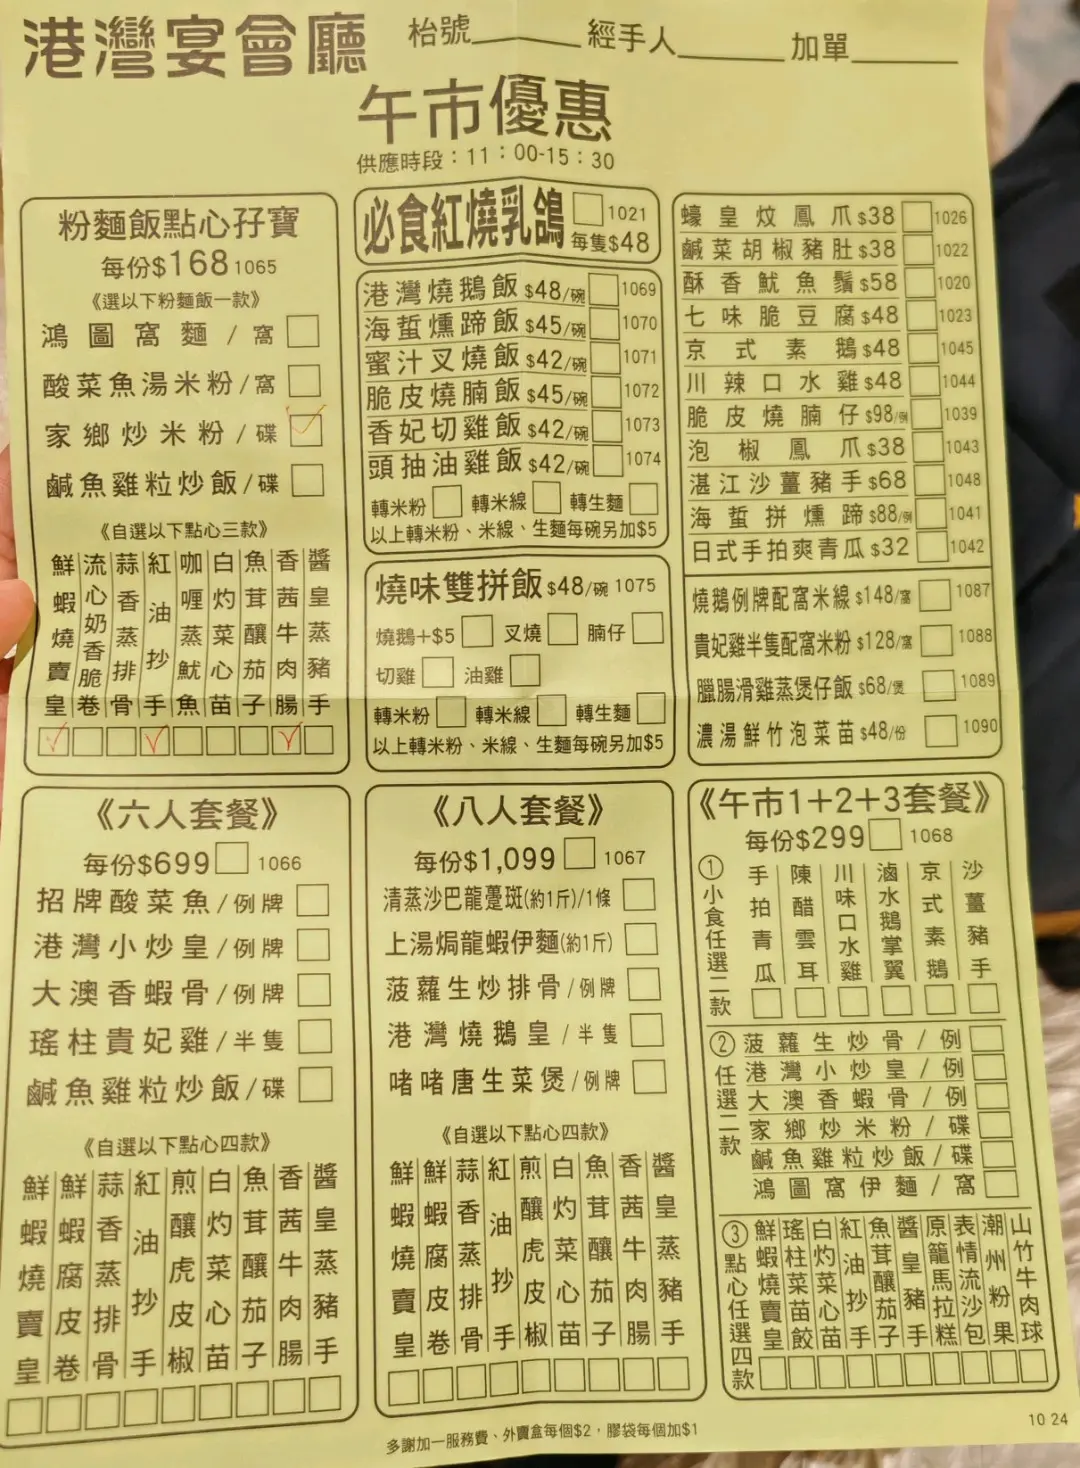 港灣宴會廳
枱號 經手人 加單
午市優惠
供應時段：11：00-15：30
粉麵飯點心孖寶
每份$168 1065
《選以下粉麵飯一款》
鴻圖窩麵/窩
酸菜魚湯米粉/窩
家鄉炒米粉/碟
鹹魚雞粒炒飯/碟
《自選以下點心三款》
鮮蝦燒賣皇
流心奶香脆卷
蒜香蒸排骨
紅油抄手
咖喱蒸魷魚
白灼菜心苗
魚茸釀茄子
香茜牛肉腸
醬皇蒸豬手
必食紅燒乳鴿 1021
每隻$48
港灣燒鵝飯 $48/碗 1069
海蜇燻蹄飯 $45/碗 1070
蜜汁叉燒飯 $42/碗 1071
脆皮燒腩飯 $45/碗 1072
香妃切雞飯 $42/碗 1073
頭抽油雞飯 $42/碗 1074
轉米粉 轉米線 轉生麵
以上轉米粉、米線、生麵每碗另加$5
燒味雙拼飯 $48/碗 1075
燒鵝+$5 叉燒 腩仔
切雞 油雞
轉米粉 轉米線 轉生麵
以上轉米粉、米線、生麵每碗另加$5
蠔皇炆鳳爪$38 1026
鹹菜胡椒豬肚$38 1022
酥香魷魚鬚$58 1020
七味脆豆腐$48 1023
京式素鵝$48 1045
川辣口水雞$48 1044
脆皮燒腩仔$98/例 1039
泡椒鳳爪$38 1043
湛江沙薑豬手$68 1048
海蜇拼燻蹄$88/例 1041
日式手拍爽青瓜$32 1042
燒鵝例牌配窩米線$148/窩 1087
貴妃雞半隻配窩米粉$128/窩 1088
臘腸滑雞蒸煲仔飯$68/煲 1089
濃湯鮮竹泡菜苗$48/份 1090
《六人套餐》
每份$699 1066
招牌酸菜魚/例牌
港灣小炒皇/例牌
大澳香蝦骨/例牌
瑤柱貴妃雞/半隻
鹹魚雞粒炒飯/碟
《自選以下點心四款》
鮮蝦燒賣皇
鮮蝦腐皮卷
蒜香蒸排骨
紅油抄手
煎釀虎皮椒
白灼菜心苗
魚茸釀茄子
香茜牛肉腸
醬皇蒸豬手
《八人套餐》
每份$1,099 1067
清蒸沙巴龍躉斑(約1斤)/1條
上湯焗龍蝦伊麵(約1斤)
菠蘿生炒排骨/例牌
港灣燒鵝皇/半隻
啫啫唐生菜煲/例牌
《自選以下點心四款》
鮮蝦燒賣皇
鮮蝦腐皮卷
蒜香蒸排骨
紅油抄手
煎釀虎皮椒
白灼菜心苗
魚茸釀茄子
香茜牛肉腸
醬皇蒸豬手
《午市1+2+3套餐》
每份$299 1068
①小食任選二款
手拍青瓜
陳醋雲耳
川味口水雞
滷水鵝掌翼
京式素鵝
沙薑豬手
②任選二款
菠蘿生炒骨/例
港灣小炒皇/例
大澳香蝦骨/例
家鄉炒米粉/碟
鹹魚雞粒炒飯/碟
鴻圖窩伊麵/窩
③點心任選四款
鮮蝦燒賣皇
瑤柱菜苗餃
白灼菜心苗
紅油抄手
魚茸釀茄子
醬皇豬手
原籠馬拉糕
表情流沙包
潮州粉果
山竹牛肉球
多謝加一服務費、外賣盒每個$2，膠袋每個加$1
10 24